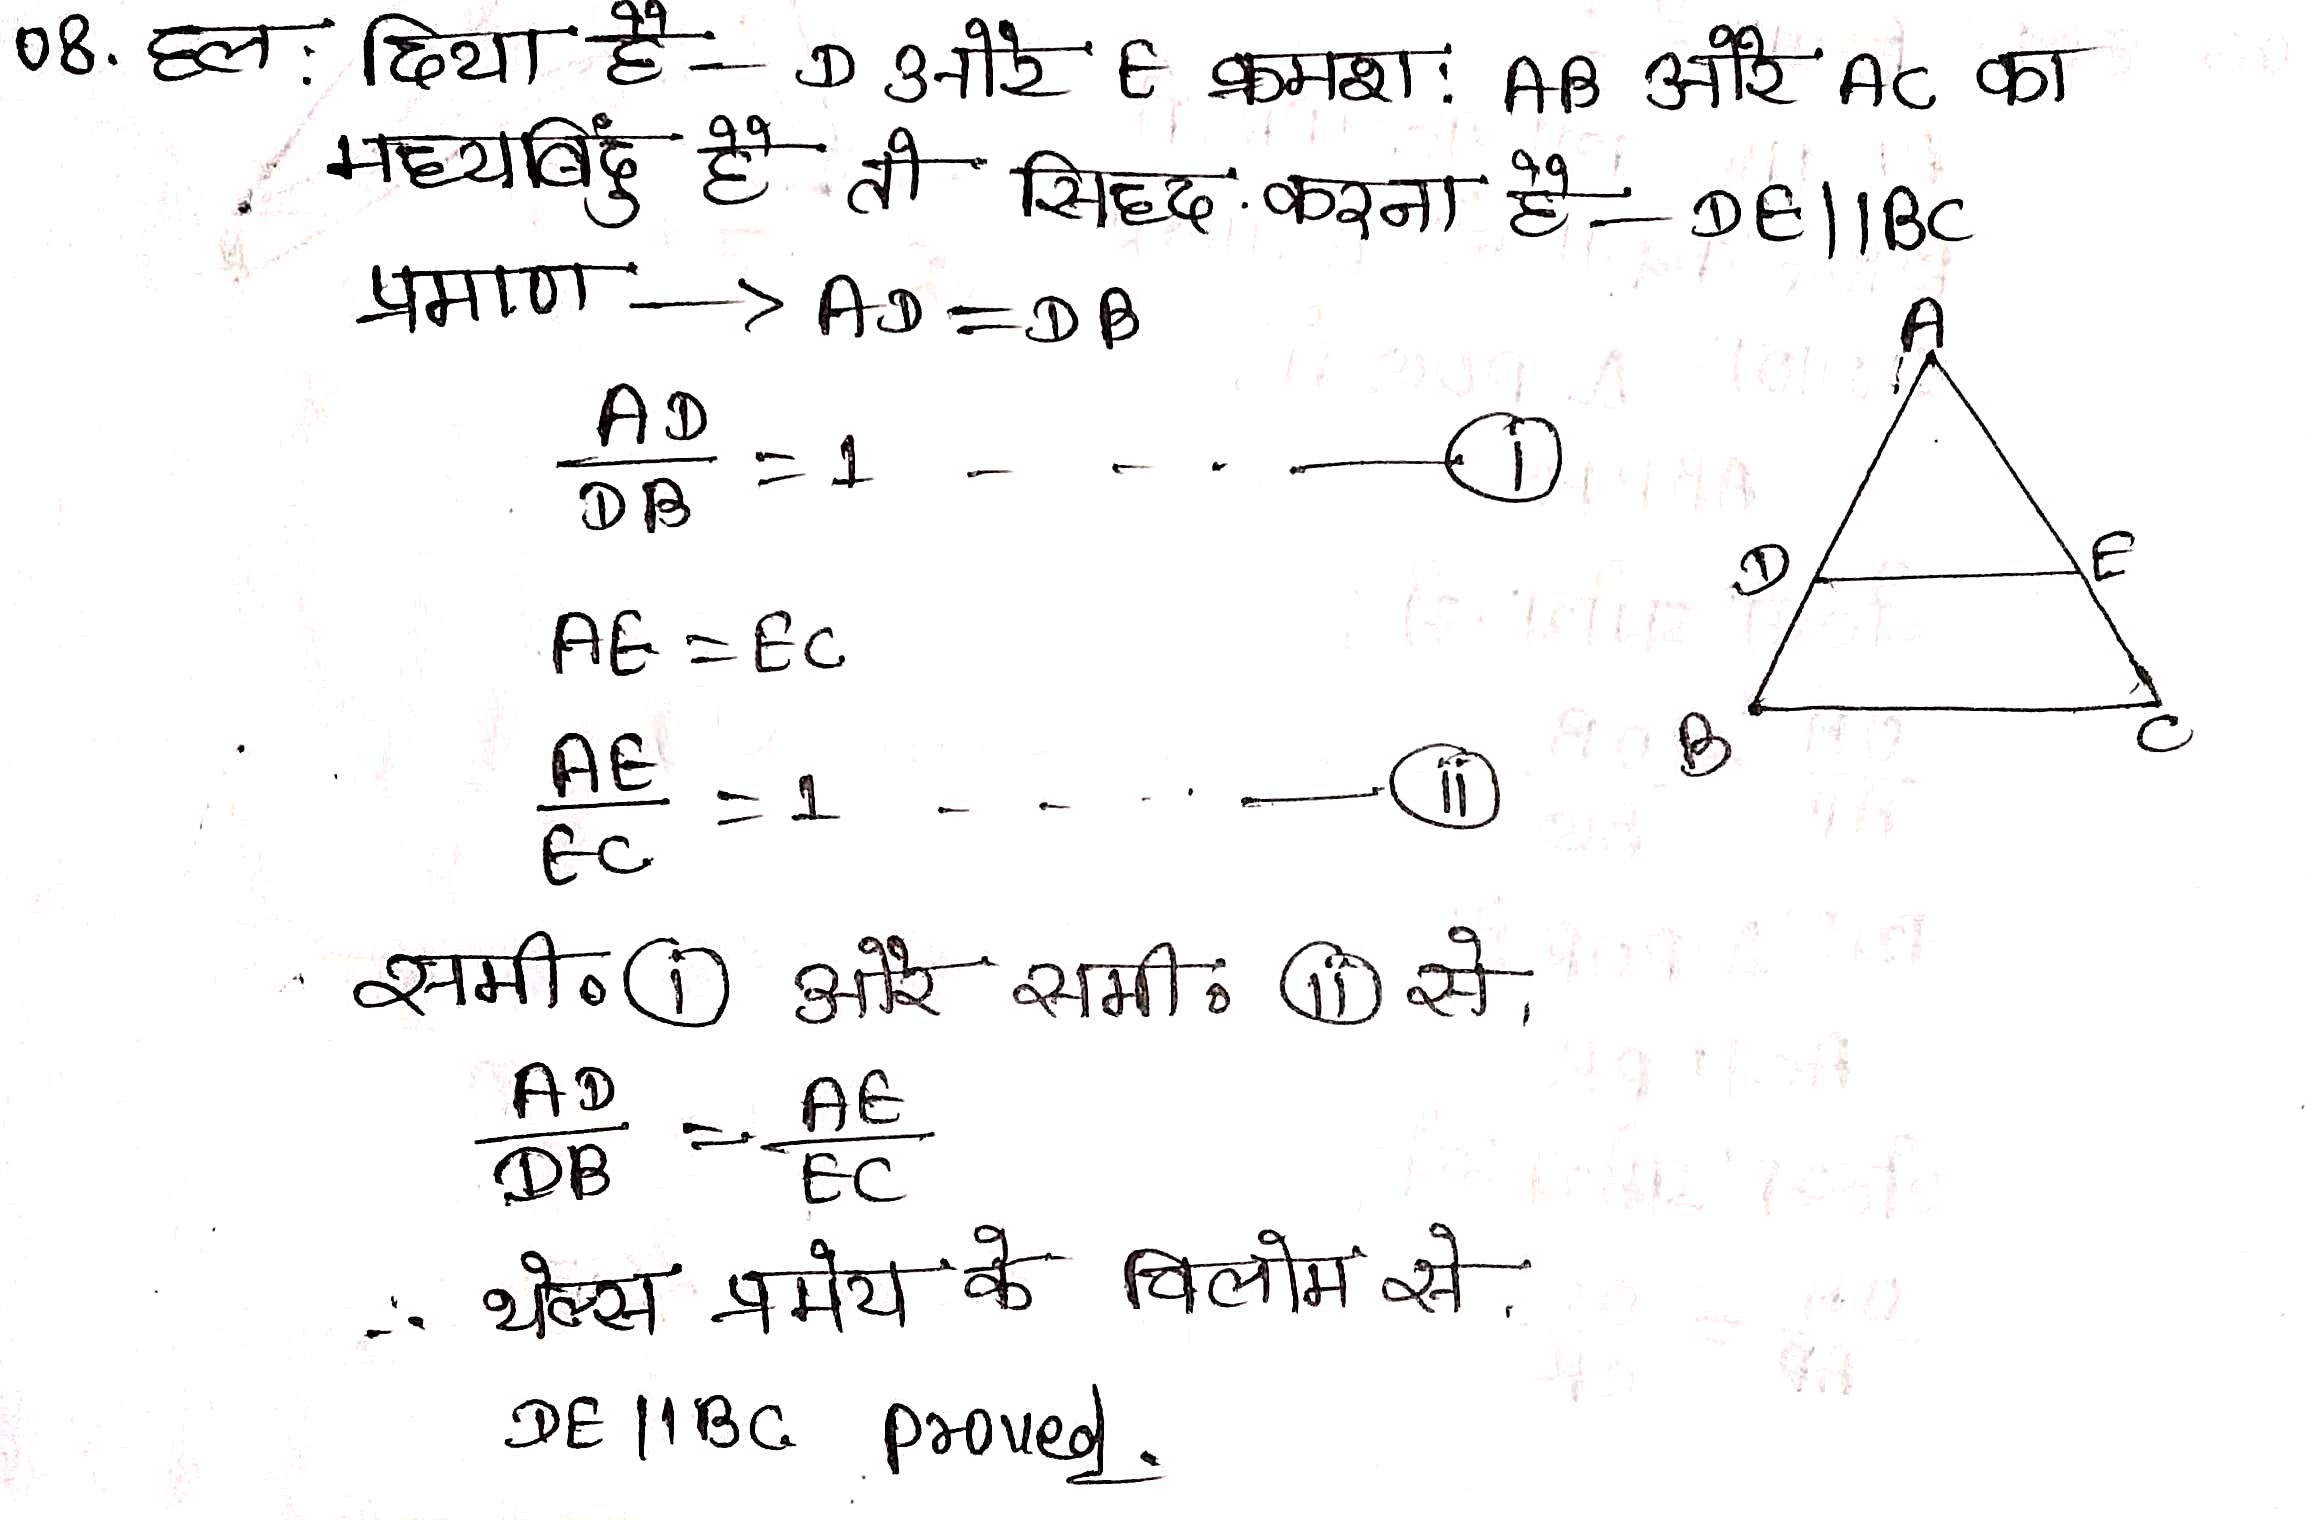 08. हल: दिया है – D और E क्रमश: AB और AC का
मध्यबिंदु है तो सिद्ध करना है – DE||BC
प्रमाण —> AD = DB
A
AD/DB = 1 - - - — (i)
D E
AE = EC
B C
AE/EC = 1 - - - — (ii)
समी० (i) और समी० (ii) से,
AD/DB = AE/EC
∴ थेल्स प्रमेय के विलोम से,
DE||BC proved.